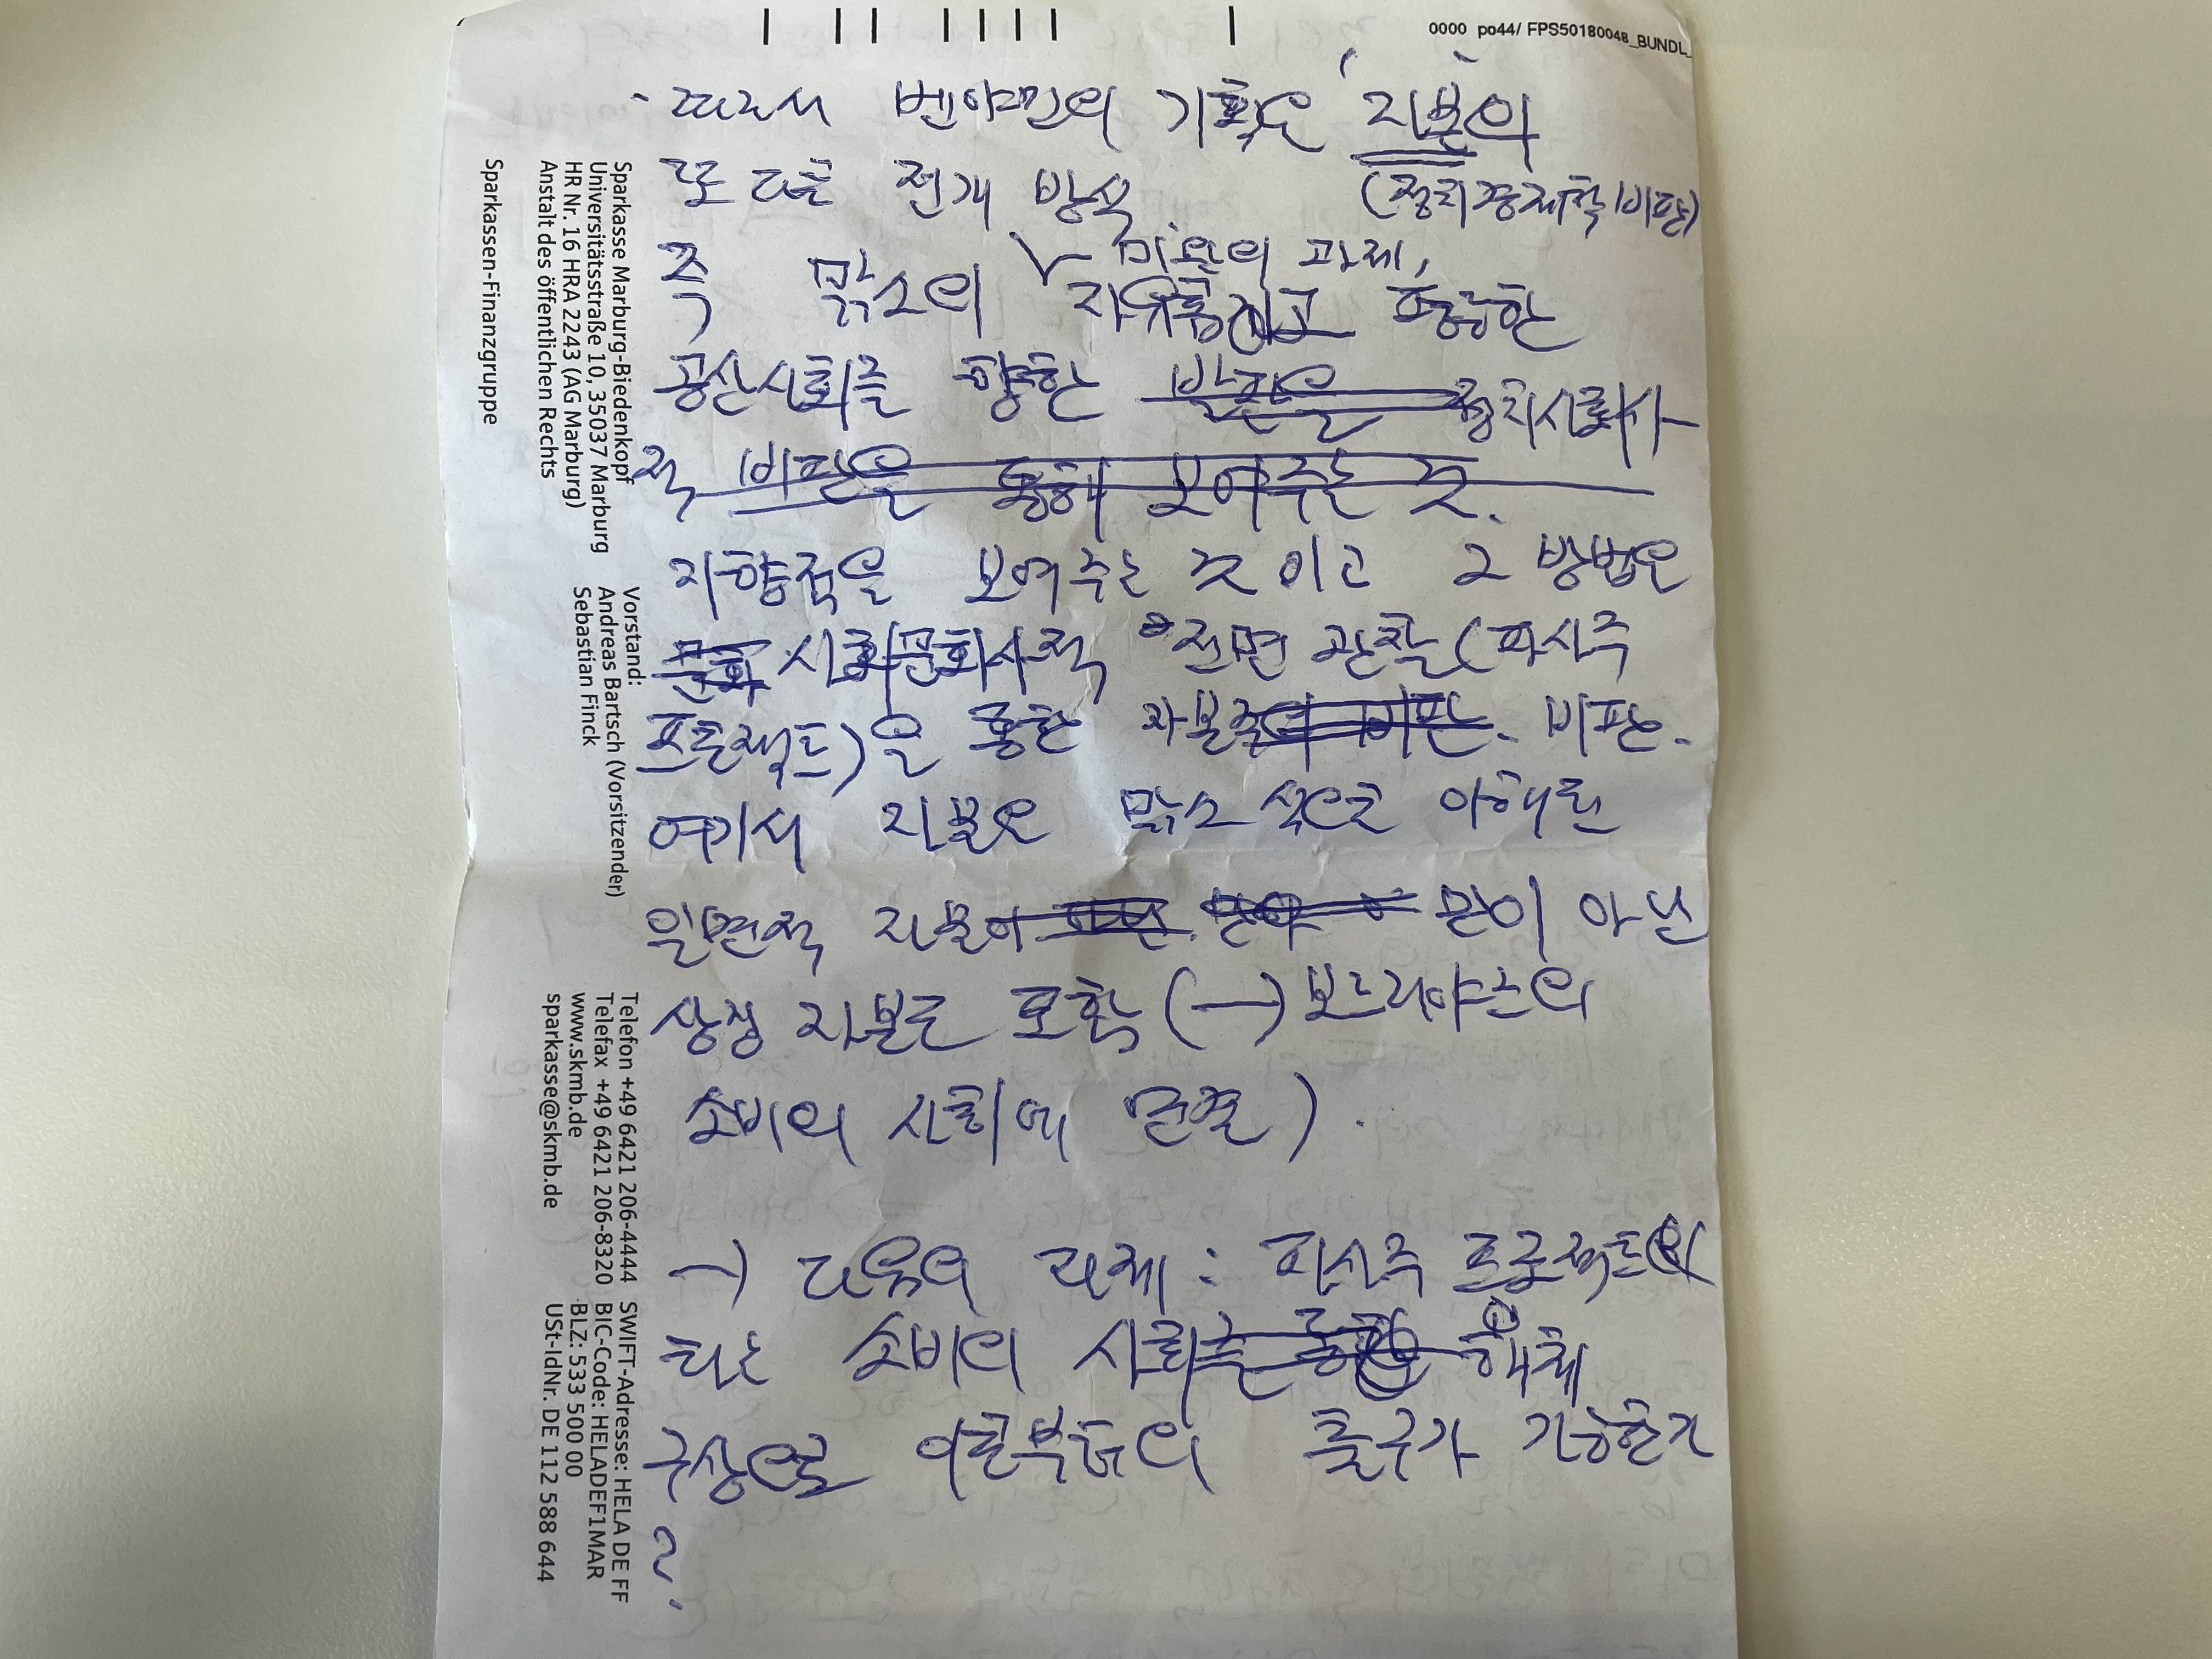 0000 po44/ FPS50180048_BUNDL_
- 따라서 벤야민의 기획은 '자본'의
또다른 전개 방식. (정치경제학 비판)
미완의 과제,
즉 맑스의 자유롭고 평등한
공산사회를 향한 발판을 정치사회사
적 비판을 통해 보여주는 것.
지향점을 보여주는 것이고 그 방법은
문화 사회문화사적 전면 관찰(파사주
프로젝트)을 통한 자본주의 비판. 비판.
여기서 자본은 맑스 식으로 이해된
일면적 자본이 만이 아닌
상징 자본도 포함 (→ 보드리야르의
소비의 사회에 연결).
→ 다음의 과제: 파사주 프로젝트의
또는 소비의 사회를 통한 해체
구상으로 이론부터의 출구가 가능한가
?
Sparkasse Marburg-Biedenkopf
Universitätsstraße 10, 35037 Marburg
HR Nr. 16 HRA 2243 (AG Marburg)
Anstalt des öffentlichen Rechts
Sparkassen-Finanzgruppe
Vorstand:
Andreas Bartsch (Vorsitzender)
Sebastian Finck
Telefon +49 6421 206-4444
Telefax +49 6421 206-8320
www.skmb.de
sparkasse@skmb.de
SWIFT-Adresse: HELA DE FF
BIC-Code: HELADEF1MAR
BLZ: 533 500 00
USt-IdNr. DE 112 588 644